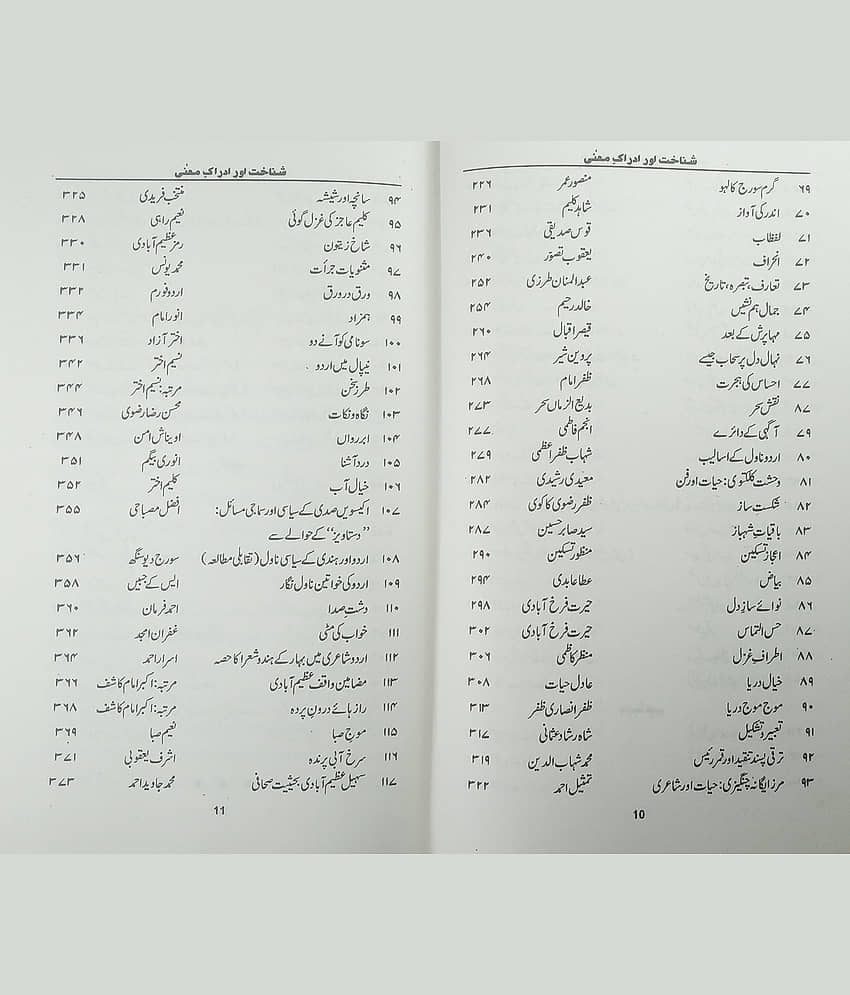 شناخت اور ادراکِ معنٰی
۶۹ گرم سورج کا لہو منصور عمر ۲۲۶
۷۰ اندر کی آواز شاہد کلیم ۲۳۱
۷۱ لفظاب قوس صدیقی ۲۳۶
۷۲ انحراف یعقوب تصور ۲۴۰
۷۳ تعارف، تبصرہ، تاریخ عبدالمنان طرزی ۲۵۲
۷۴ جمال ہم نشیں خالد رحیم ۲۵۴
۷۵ مہاپرش کے بعد قیصر اقبال ۲۶۰
۷۶ نہال دل پر سحاب جیسے پروین شیر ۲۶۴
۷۷ احساس کی ہجرت ظفر امام ۲۶۸
۷۸ نقش سحر بدیع الزماں سحر ۲۷۳
۷۹ آگہی کے دائرے انجم فاطمی ۲۷۷
۸۰ اردو ناول کے اسالیب شہاب ظفر اعظمی ۲۷۹
۸۱ وحشت کلکتوی: حیات اور فن معیدی رشیدی ۲۸۲
۸۲ شکستِ ساز ظفر رضوی کاکوی ۲۸۴
۸۳ باقیاتِ شہباز سید صابر حسین ۲۸۷
۸۴ اعجاز تسکین منظور تسکین ۲۹۰
۸۵ بیاض عطا عابدی ۲۹۴
۸۶ نوائے سازِ دل حیرت فرخ آبادی ۲۹۸
۸۷ حس التماس حیرت فرخ آبادی ۳۰۲
۸۸ اطرافِ غزل منظر کاظمی ۳۰۶
۸۹ خیال دریا عادل حیات ۳۰۸
۹۰ موج موج دریا ظفر انصاری ظفر ۳۱۳
۹۱ تعبیر و تشکیل شاہ رشاد عثمانی ۳۱۷
۹۲ ترقی پسند تنقید اور قمر رئیس محمد شہاب الدین ۳۱۹
۹۳ مرزا یگانہ چنگیزی: حیات اور شاعری تمثیل احمد ۳۲۲
10
شناخت اور ادراکِ معنٰی
۹۴ سانچہ اور شیشہ منتخب فریدی ۳۲۵
۹۵ کلیم عاجز کی غزل گوئی نعیم راہی ۳۲۸
۹۶ شاخ زیتون رمز عظیم آبادی ۳۳۰
۹۷ مثنویات جرأت محمد یونس ۳۳۱
۹۸ ورق در ورق اردو فورم ۳۳۲
۹۹ ہمزاد انور امام ۳۳۴
۱۰۰ سونامی کو آنے دو اختر آزاد ۳۳۶
۱۰۱ نیپال میں اردو نسیم اختر ۳۴۲
۱۰۲ طرز سخن مرتبہ: نسیم اختر ۳۴۴
۱۰۳ نگاہ و نکات محسن رضا رضوی ۳۴۶
۱۰۴ ابر رواں اویناش امن ۳۴۸
۱۰۵ درد آشنا انوری بیگم ۳۵۱
۱۰۶ خیال آب کلیم اختر ۳۵۲
۱۰۷ اکیسویں صدی کے سیاسی اور سماجی مسائل: افضل مصباحی ۳۵۵
”دستاویز“ کے حوالے سے
۱۰۸ اردو اور ہندی کے سیاسی ناول (تقابلی مطالعہ) سورج دیو سنگھ ۳۵۶
۱۰۹ اردو کی خواتین ناول نگار ایس کے جبیں ۳۵۸
۱۱۰ دشتِ صدا احمد فرمان ۳۶۰
۱۱۱ خواب کی مٹی غفران امجد ۳۶۲
۱۱۲ اردو شاعری میں بہار کے ہندو شعرا کا حصہ اسرار احمد ۳۶۴
۱۱۳ مضامین واقف عظیم آبادی مرتبہ: اکبر امام کاشف ۳۶۶
۱۱۴ رازہائے درونِ پردہ مرتبہ: اکبر امام کاشف ۳۶۸
۱۱۵ موج صبا نعیم صبا ۳۶۹
۱۱۶ سرخ آبی پرندہ اشرف یعقوبی ۳۷۱
۱۱۷ سہیل عظیم آبادی بحیثیت صحافی محمد جاوید احمد ۳۷۳
11